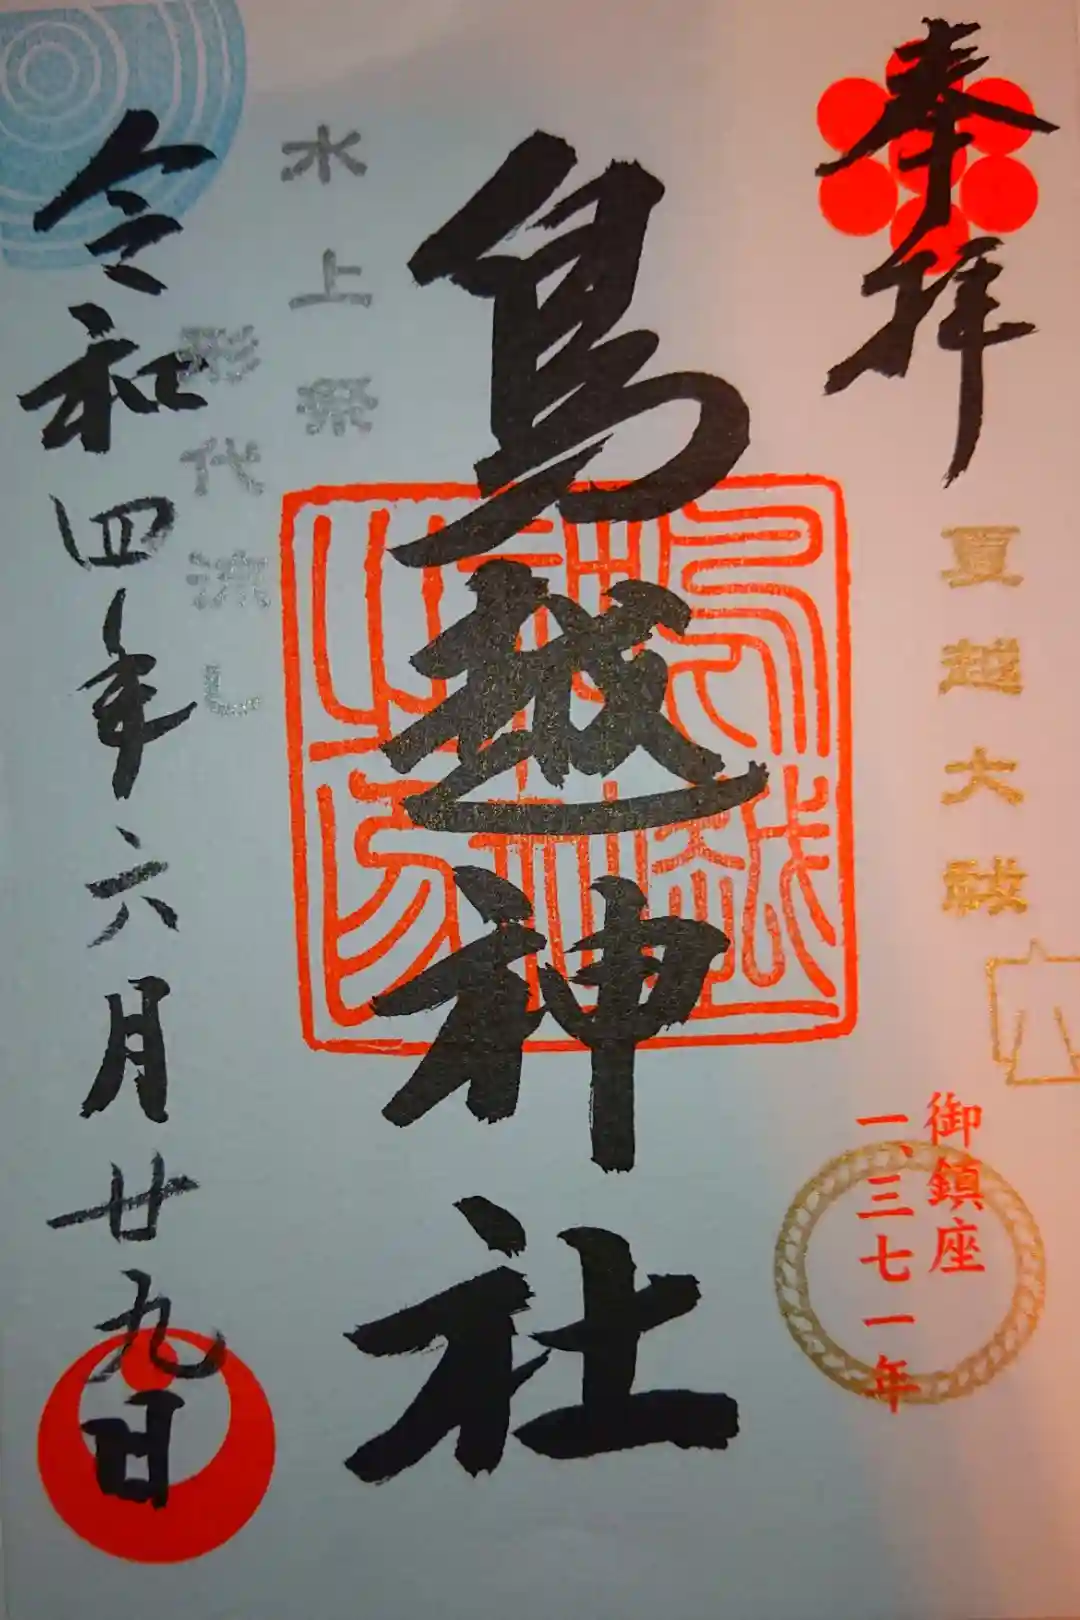 奉拝
夏越大祓
御鎮座
一、三七一年
鳥越神社
鳥越神社之印
水上祭
形代流し
令和四年六月廿九日